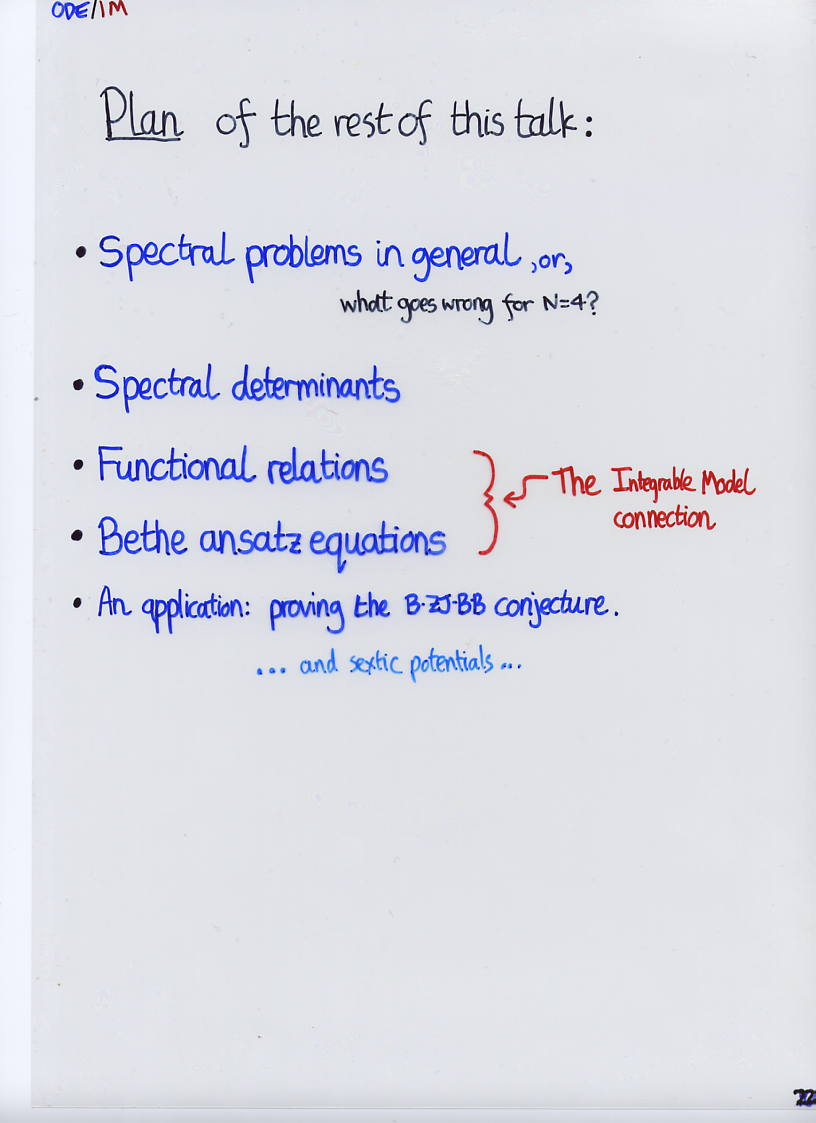 ODE/IM
Plan of the rest of this talk:
• Spectral problems in general, or,
what goes wrong for N=4?
• Spectral determinants
• Functional relations
• Bethe ansatz equations
The Integrable Model
connection
• An application: proving the B-ZJ-BB conjecture.
... and sextic potentials...
22